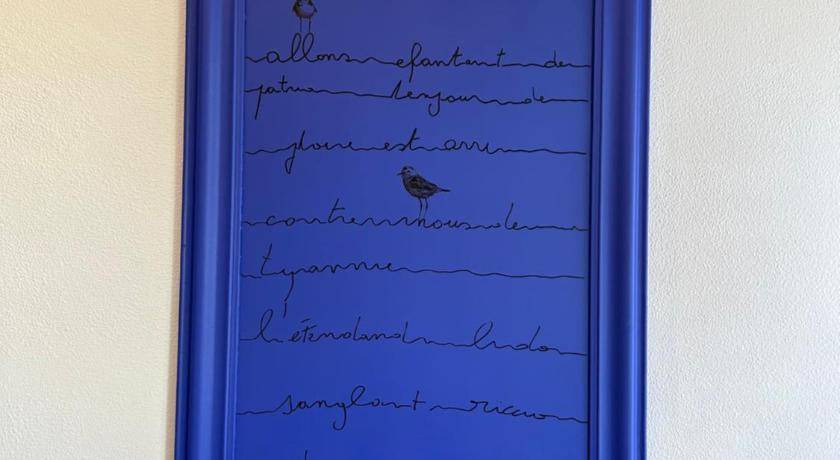 allons efantent de
patrie lesjour de
gloire est arri
contre nous de
tyrannie
l'étendand
sanglant